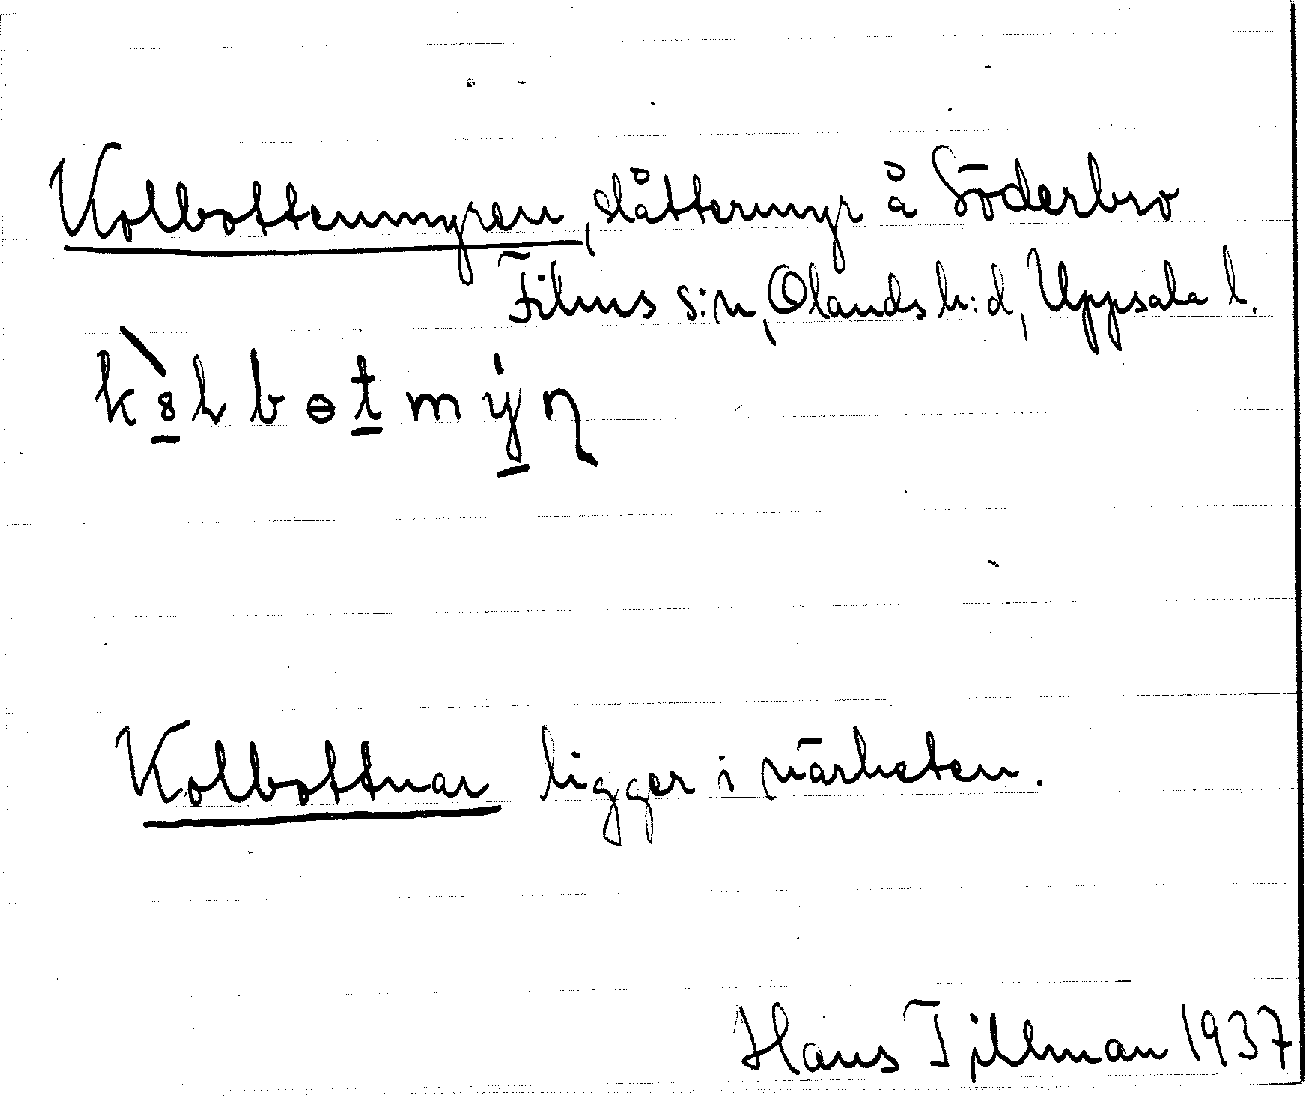 Kolbottenmyren, slåttermyr å Söderbro
Films s:n, Olands h:d, Uppsala l.
Kolbottnar ligger i närheten.
Hans Tjillman 1937